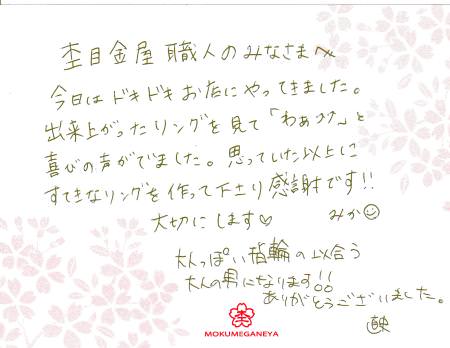 杢目金屋 職人のみなさまへ
今日は ドキドキ お店に やってきました。
出来上がったリングを見て「わぁっ」と
喜びの声がでました。思っていた以上に
すてきなリングを作って下さり感謝です!!
大切にします♡ みか☺
大人っぽい指輪の似合う
大人の男になります!!
ありがとうございました。
MOKUMEGANEYA